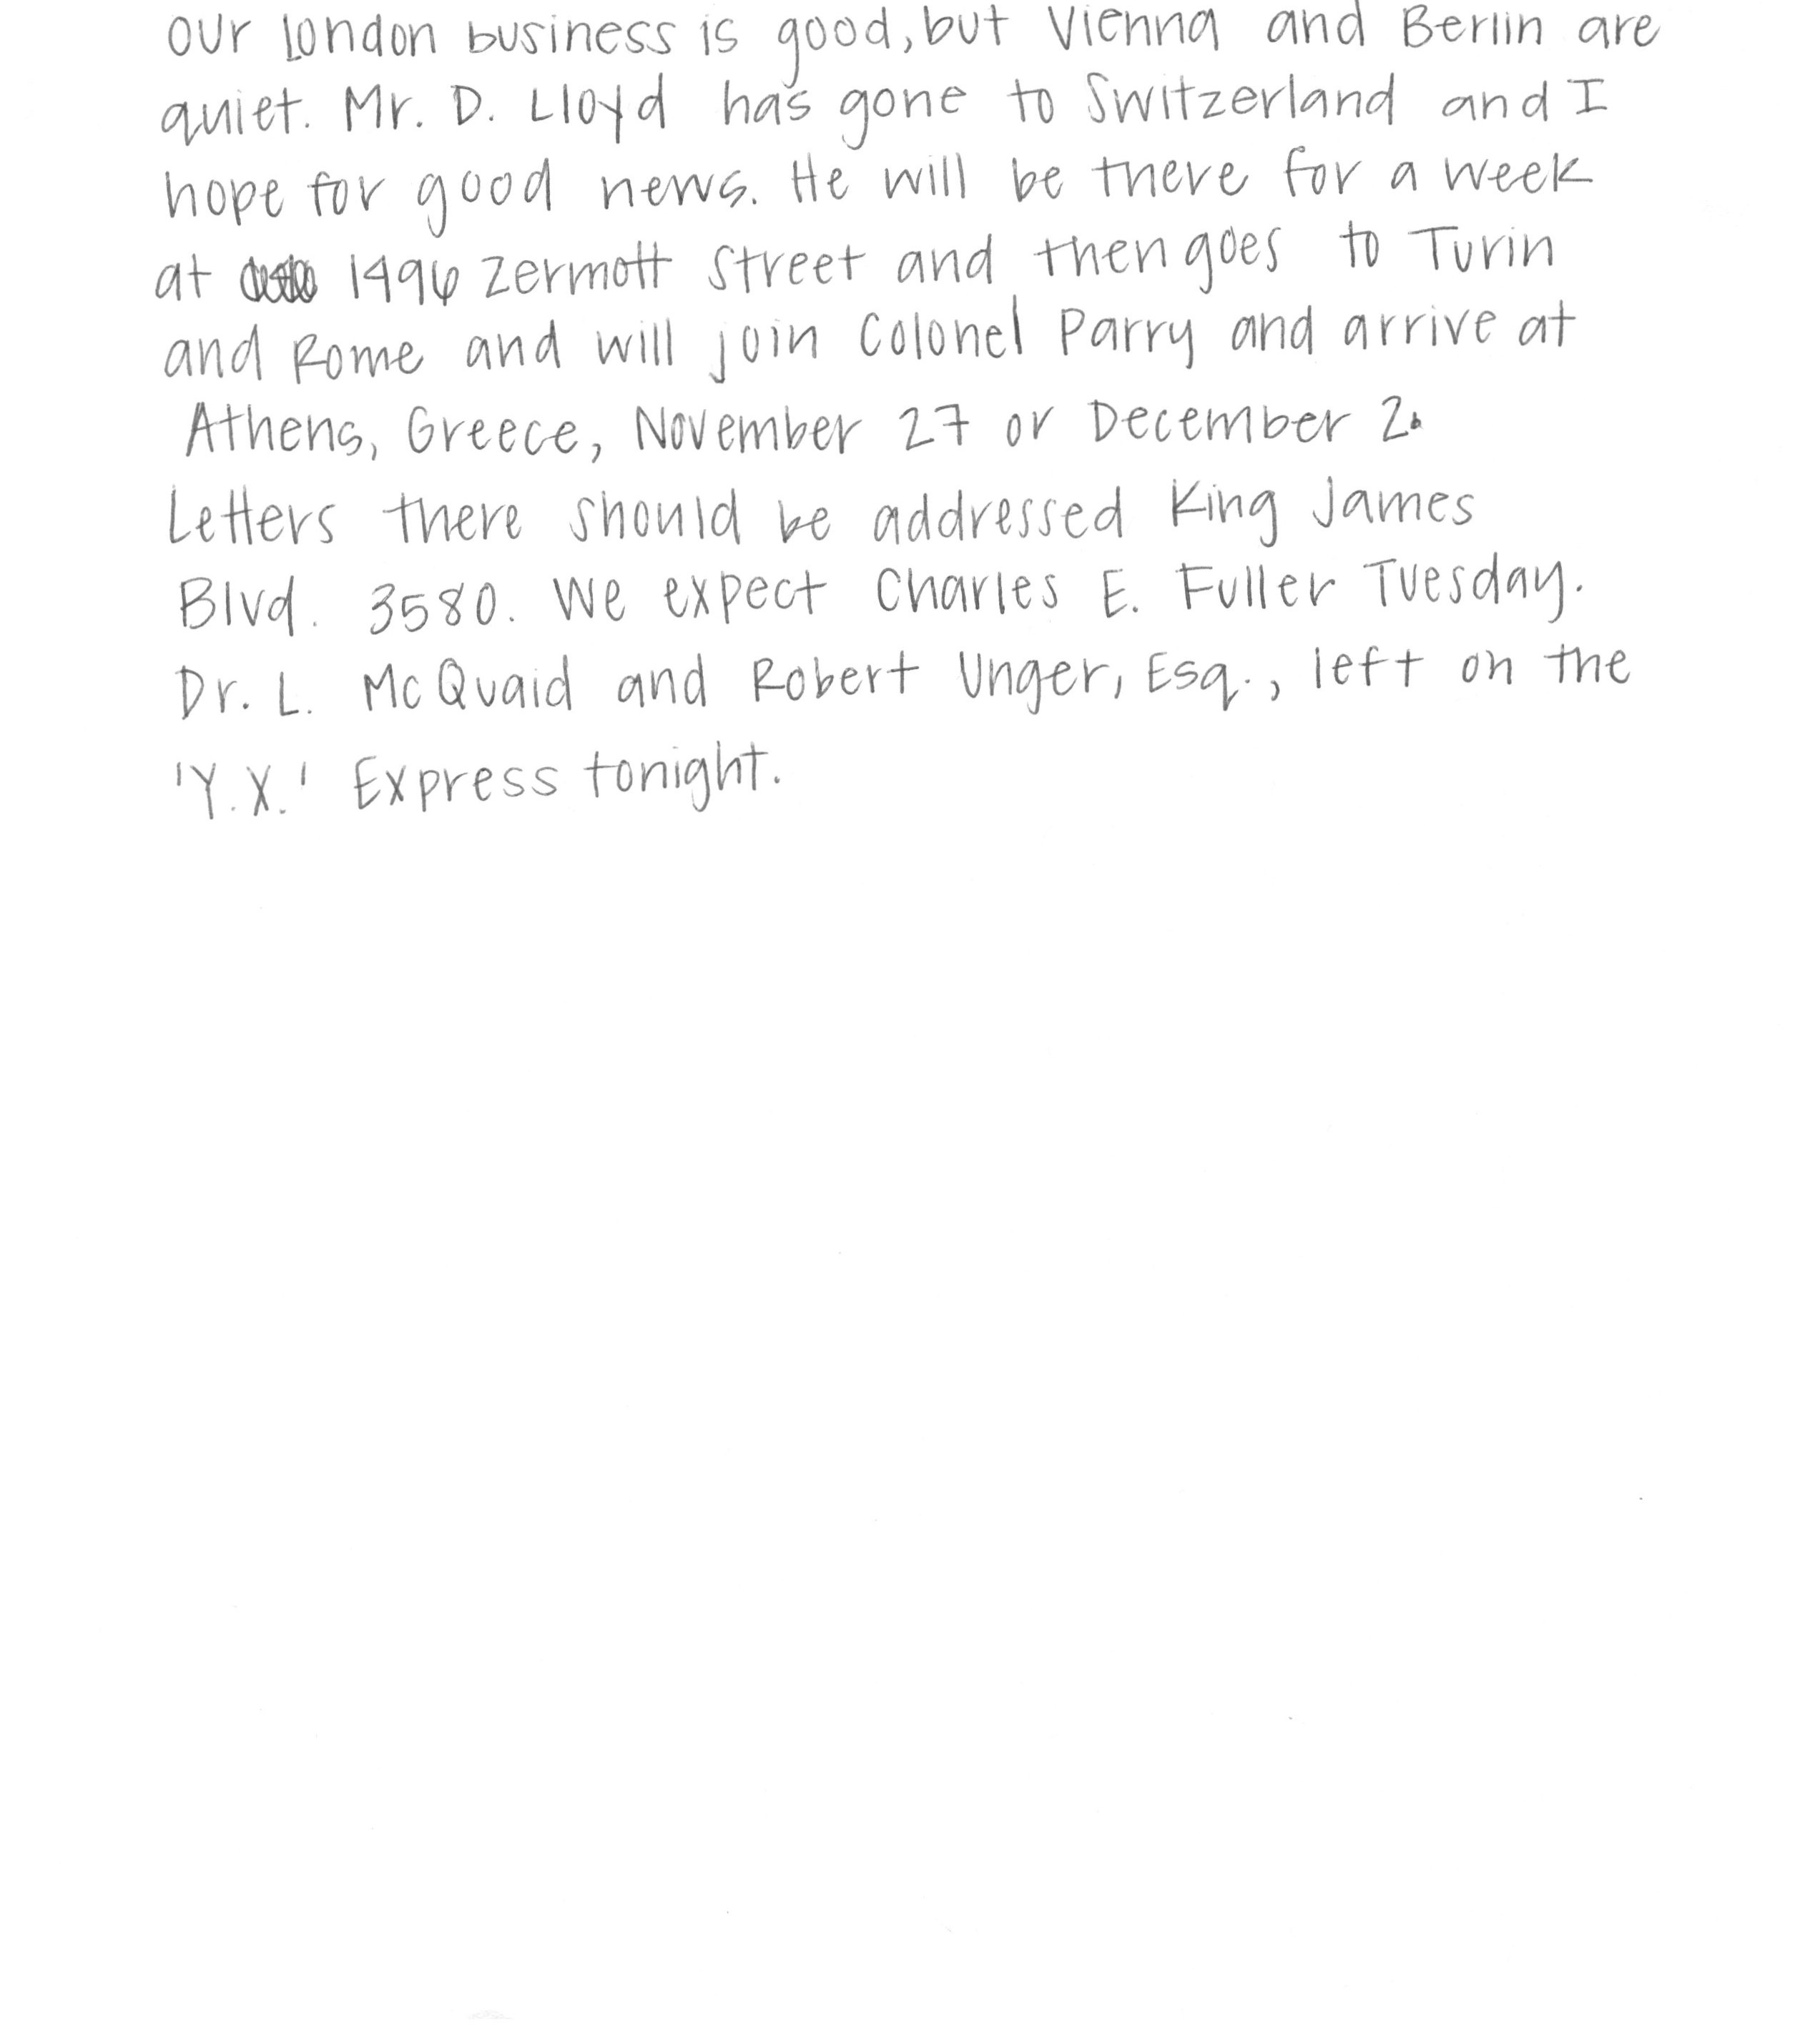 our London business is good, but Vienna and Berlin are
quiet. Mr. D. Lloyd has gone to Switzerland and I
hope for good news. He will be there for a week
at 1496 Zermott Street and then goes to Turin
and Rome and will join Colonel Parry and arrive at
Athens, Greece, November 27 or December 2.
Letters there should be addressed King James
Blvd. 3580. We expect Charles E. Fuller Tuesday.
Dr. L. McQuaid and Robert Unger, Esq., left on the
'Y.X.' Express tonight.